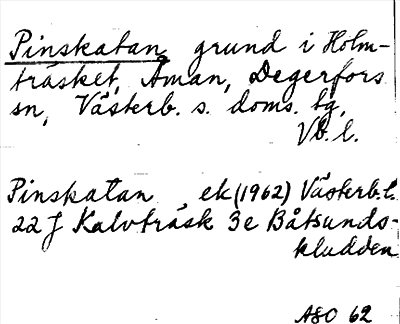 Pinskatan, grund i Holm-
träsket, Åman, Degerfors
sn, Västerb. s. doms. tg,
Vb. l.
Pinskatan ek (1962) Västerb.l.
22 J Kalvträsk 3e Båtsunds-
kludden
ASO 62